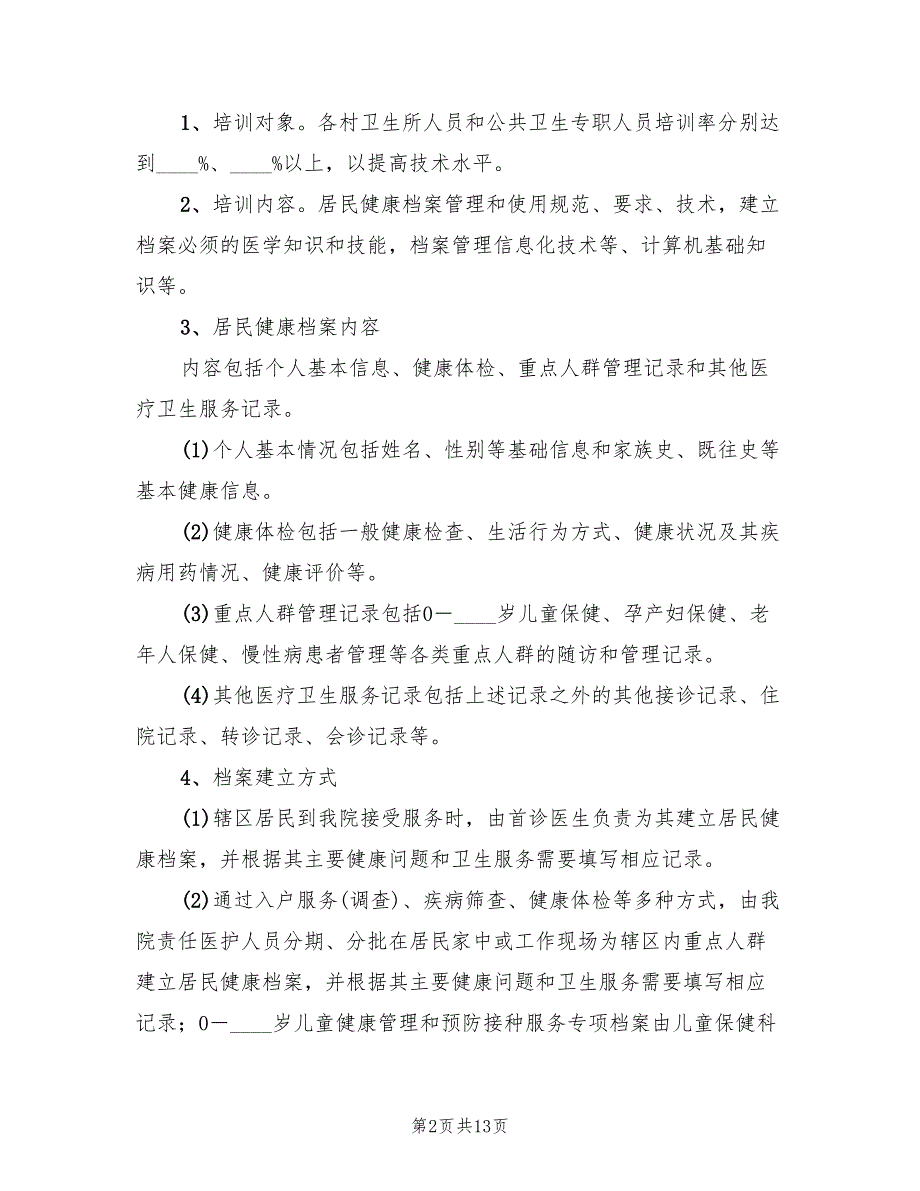 1、培训对象。各村卫生所人员和公共卫生专职人员培训率分别达
到____%、____%以上，以提高技术水平。
2、培训内容。居民健康档案管理和使用规范、要求、技术，建立
档案必须的医学知识和技能，档案管理信息化技术等、计算机基础知
识等。
3、居民健康档案内容
内容包括个人基本信息、健康体检、重点人群管理记录和其他医
疗卫生服务记录。
(1)个人基本情况包括姓名、性别等基础信息和家族史、既往史等
基本健康信息。
(2)健康体检包括一般健康检查、生活行为方式、健康状况及其疾
病用药情况、健康评价等。
(3)重点人群管理记录包括0－____岁儿童保健、孕产妇保健、老
年人保健、慢性病患者管理等各类重点人群的随访和管理记录。
(4)其他医疗卫生服务记录包括上述记录之外的其他接诊记录、住
院记录、转诊记录、会诊记录等。
4、档案建立方式
(1)辖区居民到我院接受服务时，由首诊医生负责为其建立居民健
康档案，并根据其主要健康问题和卫生服务需要填写相应记录。
(2)通过入户服务(调查)、疾病筛查、健康体检等多种方式，由我
院责任医护人员分期、分批在居民家中或工作现场为辖区内重点人群
建立居民健康档案，并根据其主要健康问题和卫生服务需要填写相应
记录；0－____岁儿童健康管理和预防接种服务专项档案由儿童保健科
第2页共13页